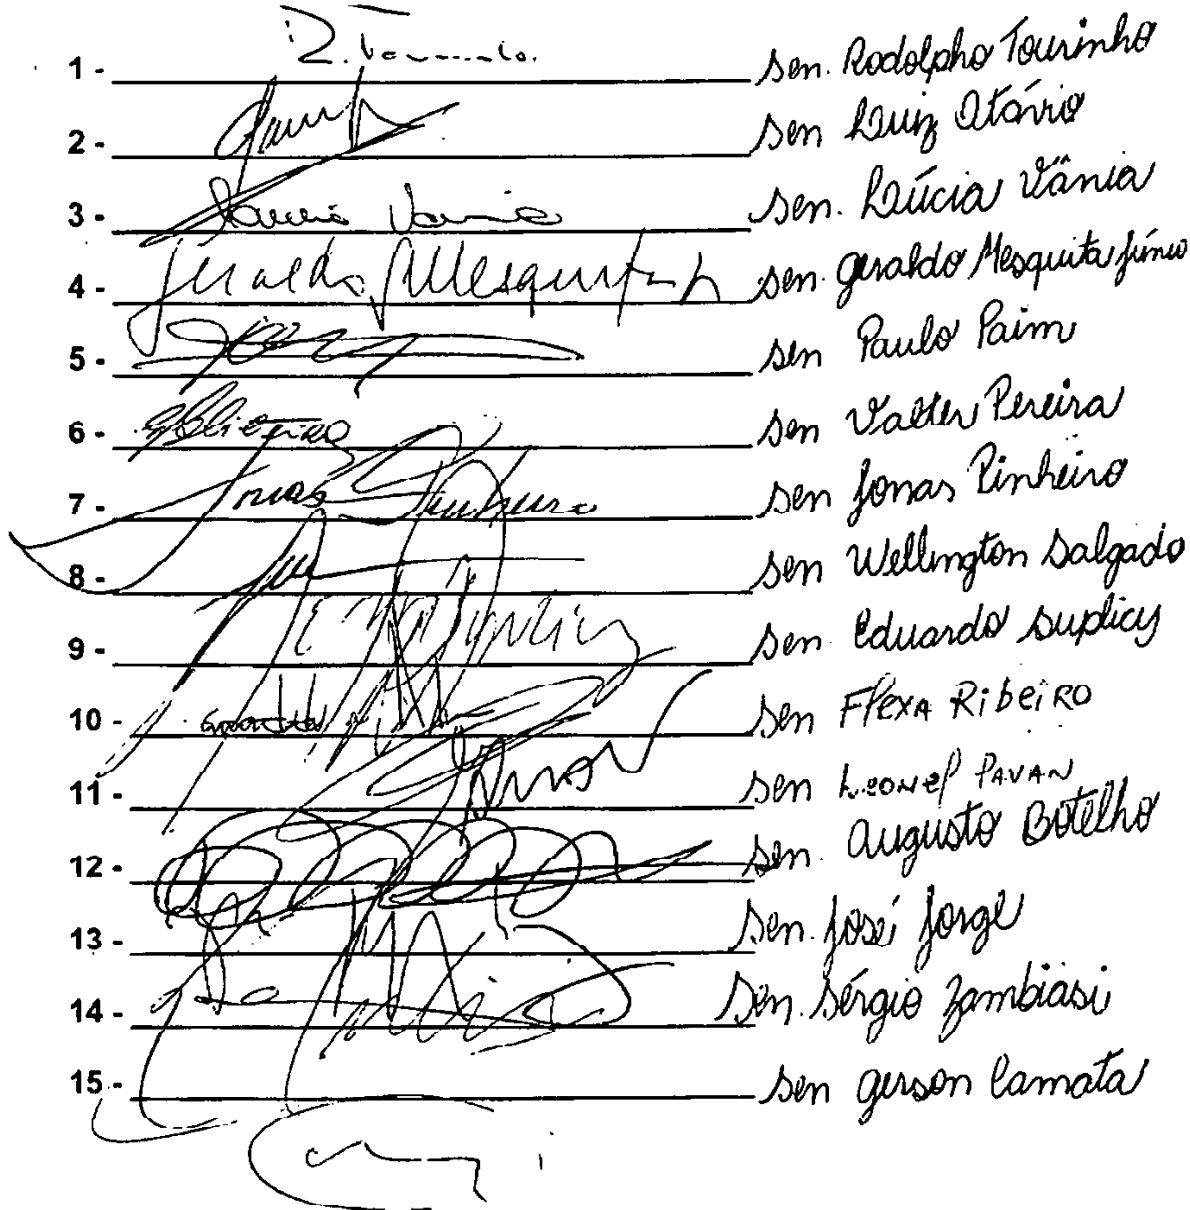 1 - R. Tourinho. Sen. Rodolpho Tourinho
2 - Sen Luiz Otávio
3 - Lucia Vania Sen. Lúcia Vânia
4 - Geraldo Mesquita Jr Sen. Geraldo Mesquita Júnior
5 - Sen Paulo Paim
6 - Sen Valter Pereira
7 - Jonas Pinheiro Sen Jonas Pinheiro
8 - Sen Wellington Salgado
9 - Sen Eduardo Suplicy
10 - Sen Flexa Ribeiro
11 - Sen Leonel Pavan
12 - Sen. Augusto Botelho
13 - Sen. José Jorge
14 - Sen. Sérgio Zambiasi
15 - Sen Gerson Camata